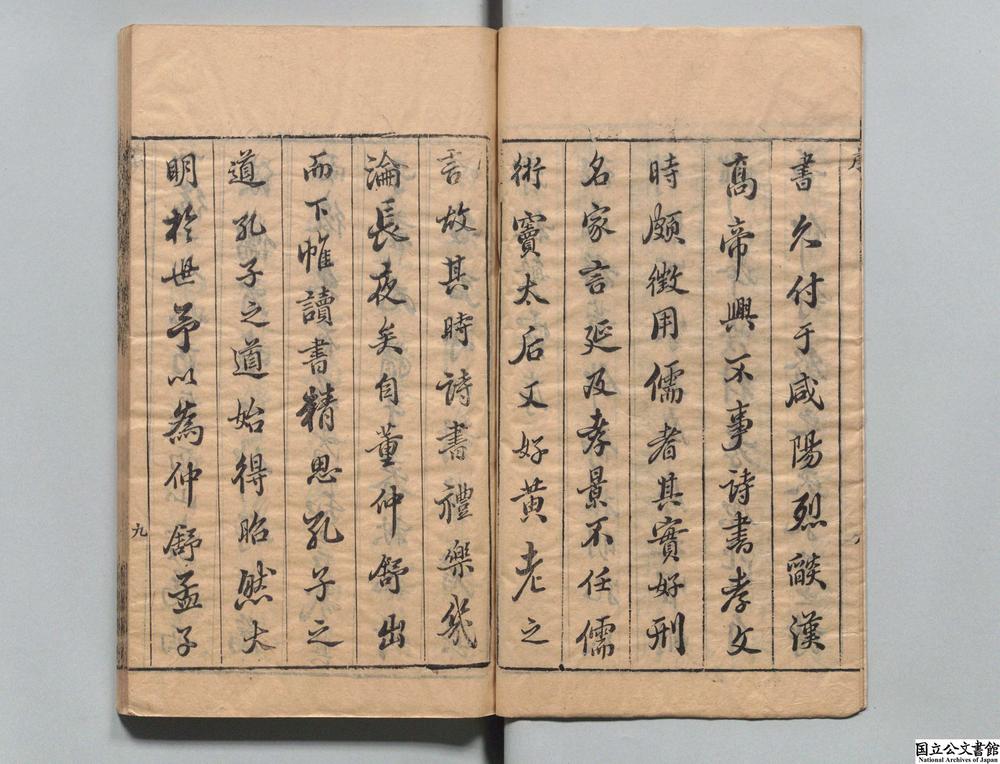 書久付于咸陽烈燄漢
高帝興不事詩書孝文
時頗徵用儒者其實好刑
名家言延及孝景不任儒
術竇太后又好黃老之
言故其時詩書禮樂幾
淪長夜矣自董仲舒出
而下帷讀書精思孔子之
道孔子之道始得昭然大
明於世予以為仲舒孟子
九
国立公文書館
National Archives of Japan